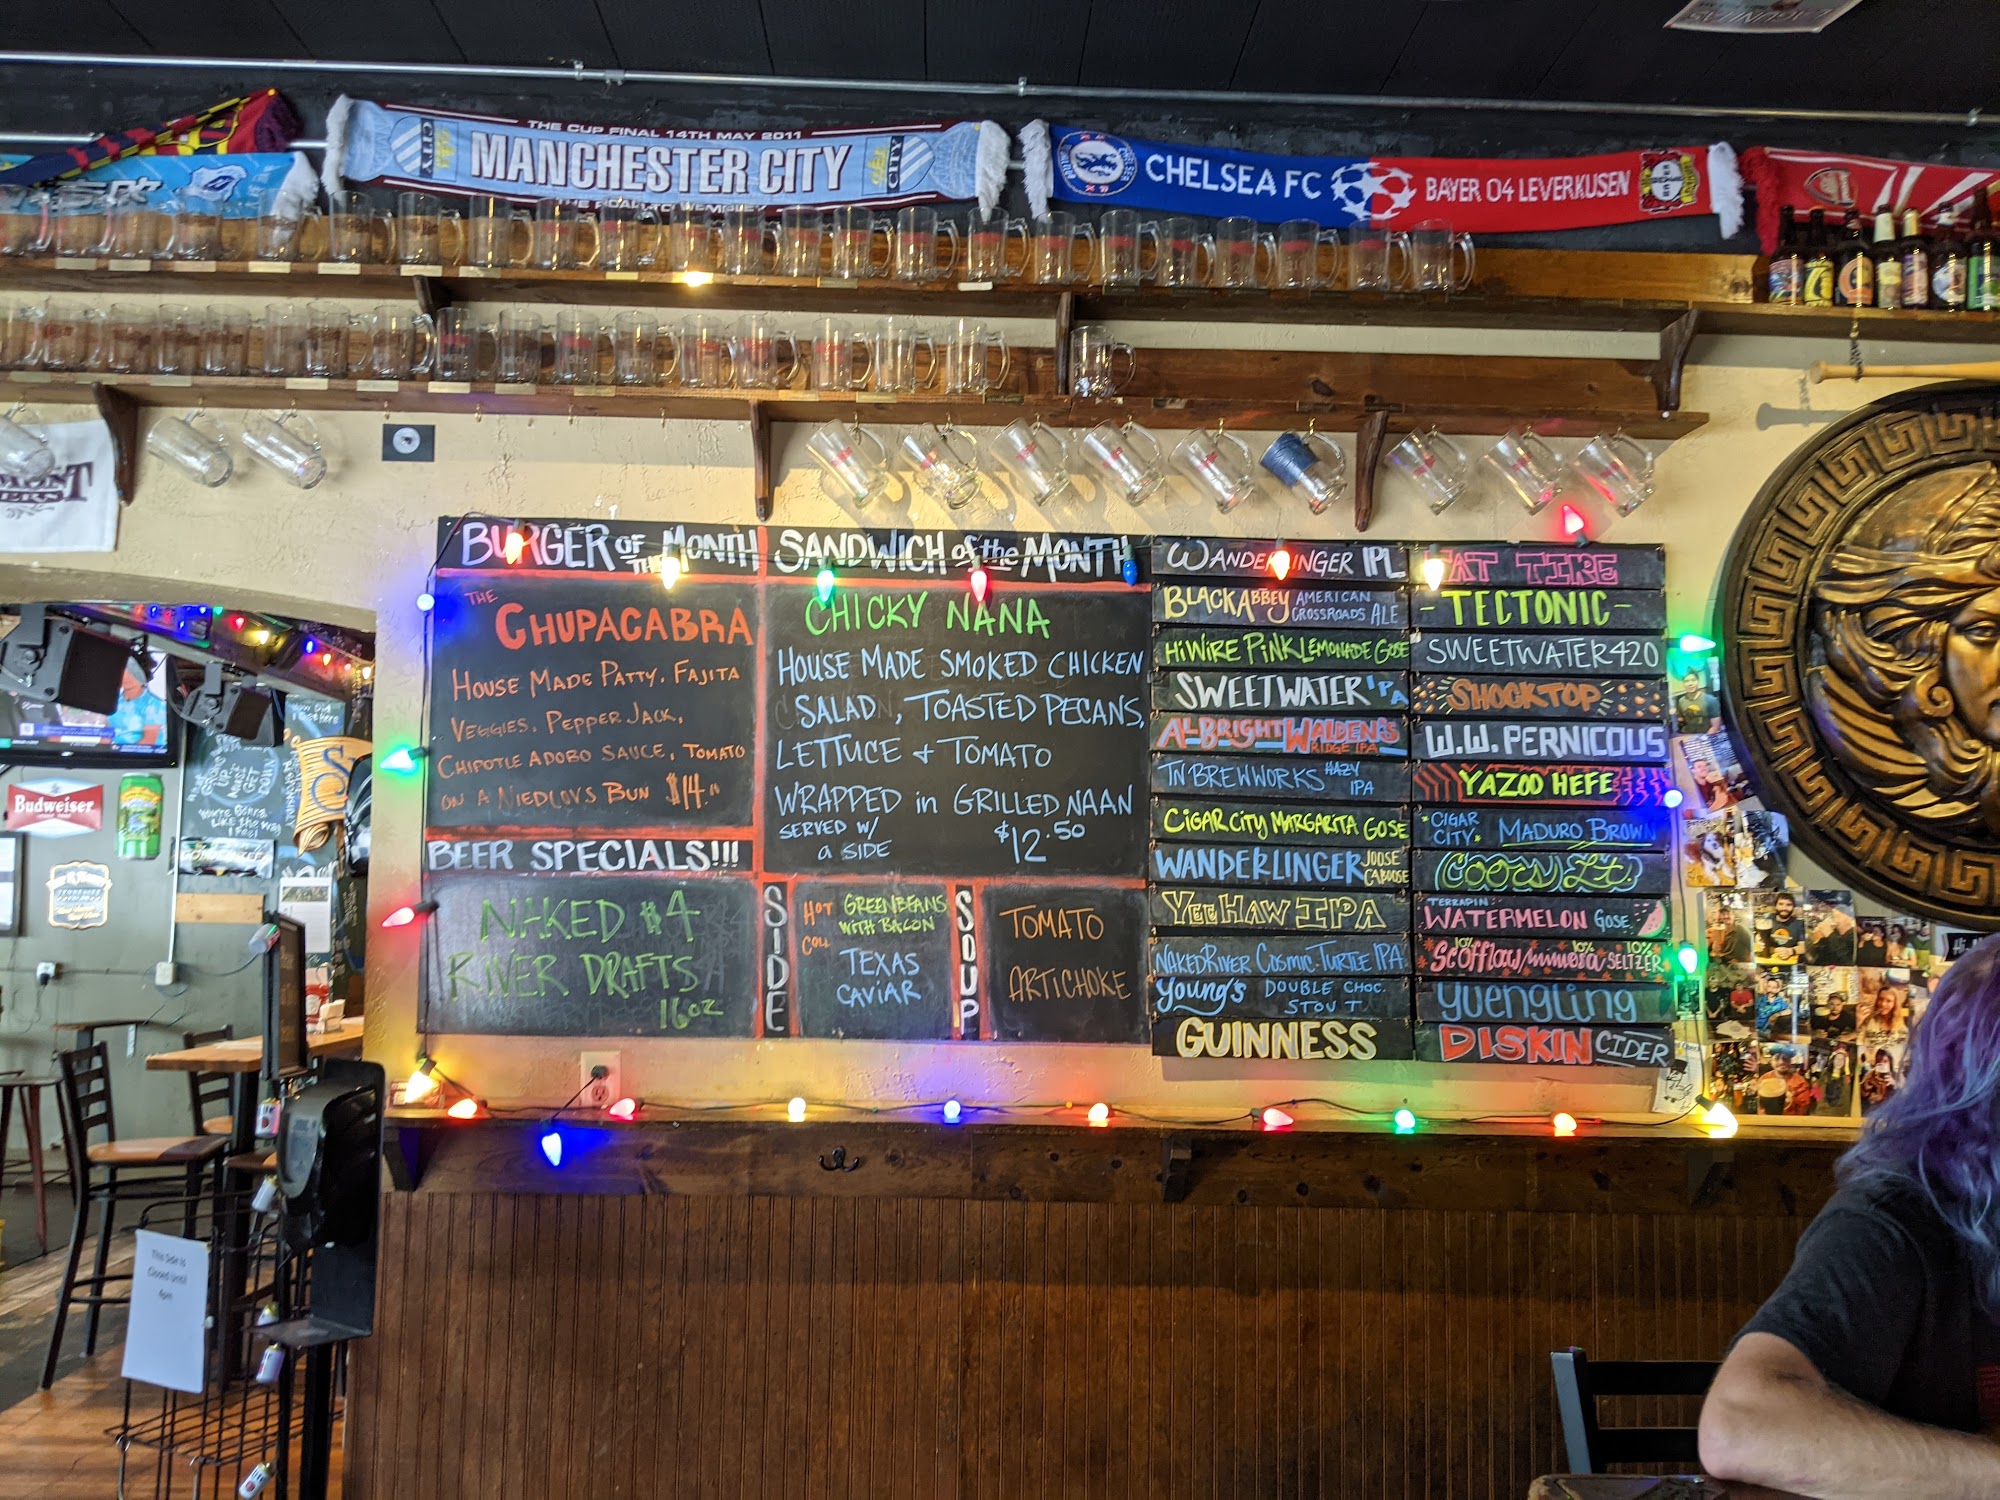 THE CUP FINAL 14TH MAY 2011
MANCHESTER CITY
THE ROAD TO WEMBLEY
CITY
CITY
CHELSEA FC
BAYER 04 LEVERKUSEN
BURGER OF THE MONTH
THE
CHUPACABRA
HOUSE MADE PATTY, FAJITA
VEGGIES, PEPPER JACK,
CHIPOTLE ADOBO SAUCE, TOMATO
ON A NIEDLOVS BUN $14.
BEER SPECIALS!!!
NAKED $4
RIVER DRAFTS
16oz
SANDWICH of the MONTH
CHICKY NANA
HOUSE MADE SMOKED CHICKEN
SALAD, TOASTED PECANS,
LETTUCE + TOMATO
WRAPPED in GRILLED NAAN
SERVED W/
a SIDE
$12.50
SIDE
HOT
GREENBEANS
WITH BACON
TEXAS
CAVIAR
SOUP
TOMATO
ARTICHOKE
WANDERLINGER IPL
BLACKABBEY AMERICAN
CROSSROADS ALE
HiWIRE PiNK LEMONADE GOSE
SWEETWATER IPA
ALBRIGHT WALDEN'S
RIDGE IPA
TN BREWWORKS HAZY
IPA
CIGAR CITY MARGARITA GOSE
WANDERLINGER JOOSE
CABOOSE
YEEHAW IPA
NAKED RIVER COSMIC TURTLE IPA
YOUNG'S DOUBLE CHOC.
STOUT
GUINNESS
FAT TIRE
-TECTONIC-
SWEETWATER 420
SHOCKTOP
W.W. PERNICOUS
YAZOO HEFE
CIGAR
CITY
MADURO BROWN
COORS LT.
TERRAPIN
WATERMELON GOSE
10% 10% 10%
Scofflaw/mimosa SELTZER
yuengling
DISKIN CIDER
Budweiser
This Side is
Closed Until
4pm